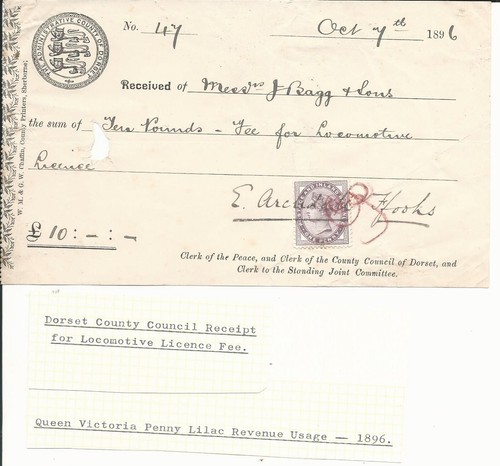 THE ADMINISTRATIVE COUNTY OF DORSET
No. 47 Oct 7th 1896
Received of Messrs J Bagg & Sons
the sum of Ten Pounds – Fee for Locomotive
Licence
E. Arch Ffooks
£10:-:-
Clerk of the Peace, and Clerk of the County Council of Dorset, and
Clerk to the Standing Joint Committee.
W. M. & G. W. Chaffin, County Printers, Sherborne.
Dorset County Council Receipt
for Locomotive Licence Fee.
Queen Victoria Penny Lilac Revenue Usage — 1896.